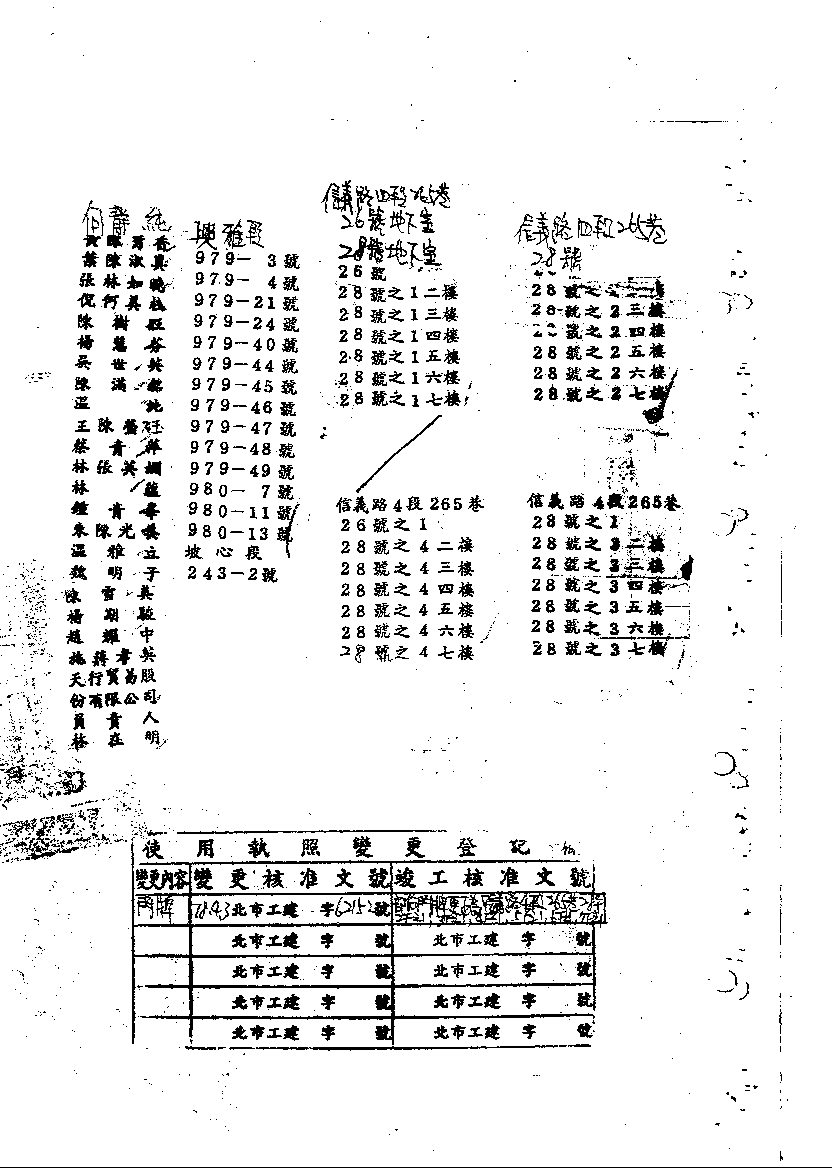 何靜純
葉陳淑真
張林如曉
陳樹
楊慧
吳世英
陳滿
溫
王陳
蔡青萍
林張英嫻
林
鍾青
朱陳光
溫雅立
魏明子
陳雪美
楊
趙耀中
施蔣孝英
天行貿易股
份有限公司
員責人
林在明
興雅段
979－3號
979－4號
979－21號
979－24號
979－40號
979－44號
979－45號
979－46號
979－47號
979－48號
979－49號
980－7號
980－11號
980－13號
坡心段
243－2號
信義路四段265巷
26號地下室
28號地下室
26號
28號之1二樓
28號之1三樓
28號之1四樓
28號之1五樓
28號之1六樓
28號之1七樓
信義路四段265巷
28號
28號之2二樓
28號之2三樓
28號之2四樓
28號之2五樓
28號之2六樓
28號之2七樓
信義路4段265巷
26號之1
28號之4二樓
28號之4三樓
28號之4四樓
28號之4五樓
28號之4六樓
28號之4七樓
信義路4段265巷
28號之1
28號之3二樓
28號之3三樓
28號之3四樓
28號之3五樓
28號之3六樓
28號之3七樓
使用執照變更登記
變更內容 變更核准文號 竣工核准文號
門牌 78.4.3北市工建 字62152號
北市工建 字 號 北市工建 字 號
北市工建 字 號 北市工建 字 號
北市工建 字 號 北市工建 字 號
北市工建 字 號 北市工建 字 號